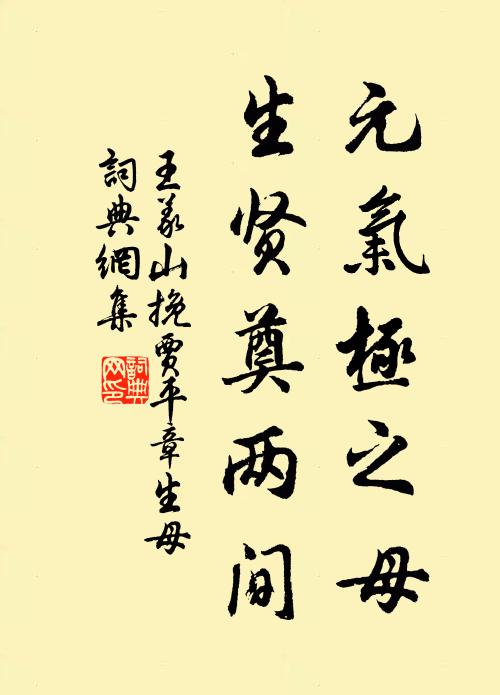 元氣極之母
生贤奠两间
王义山挽賈平章生母
詞典網集
詞典
网印